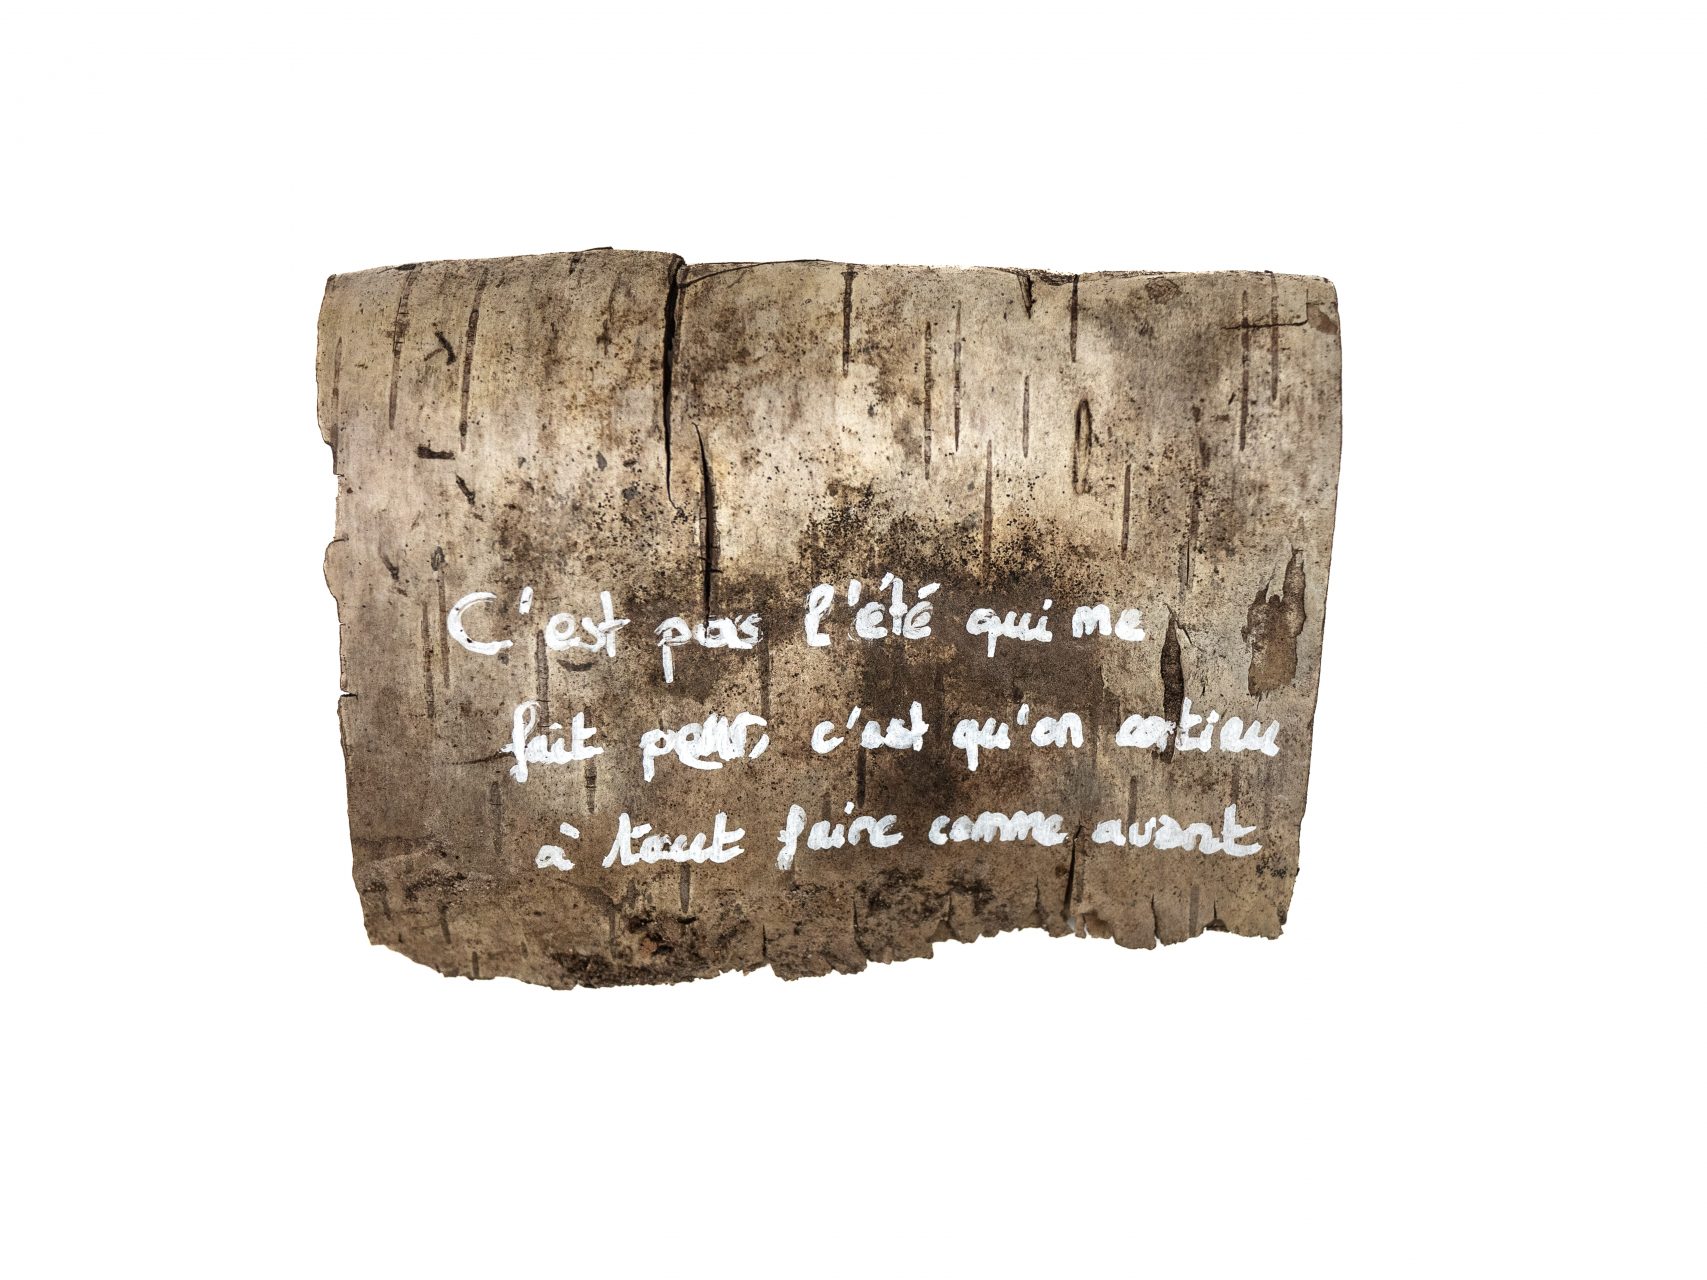 C'est pas l'été qui me
fait peur, c'est qu'on continu
à tout faire comme avant